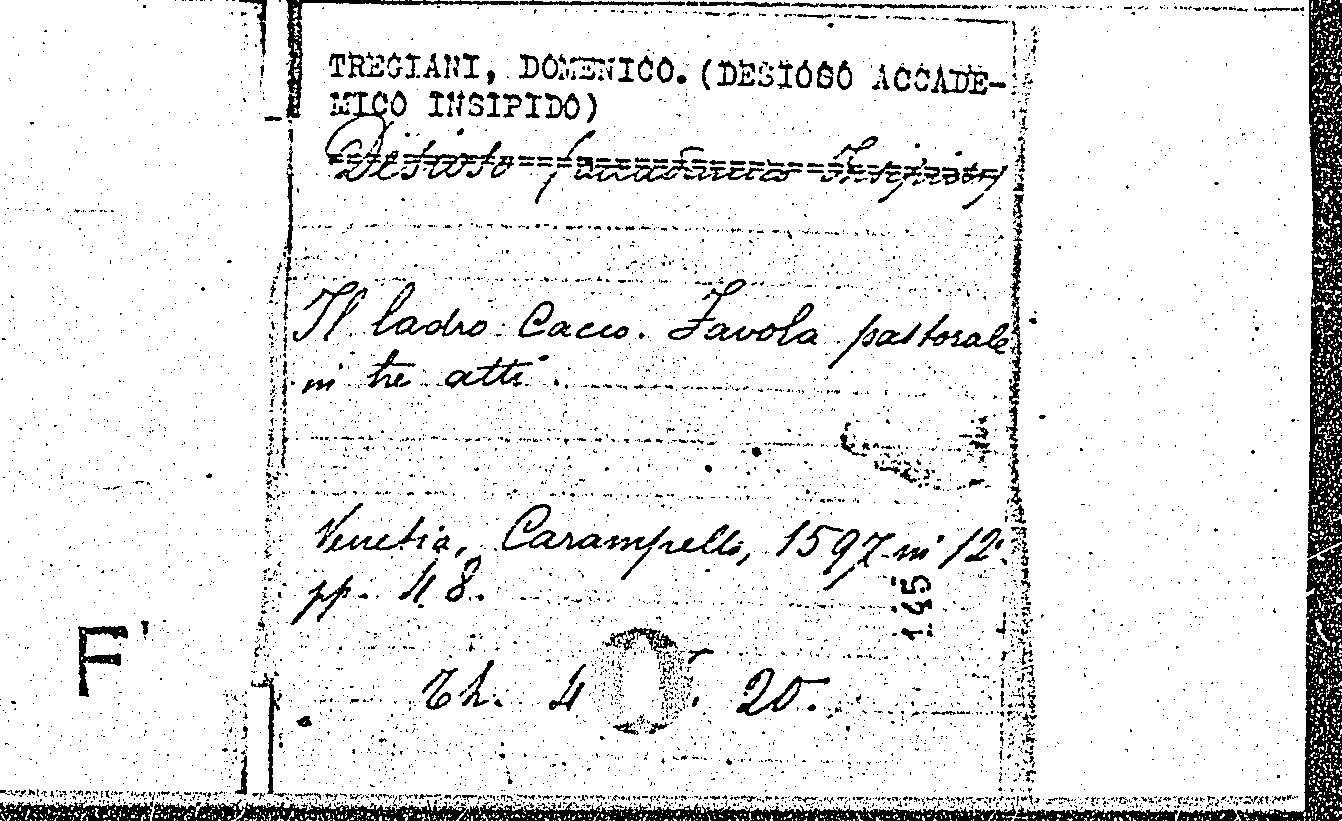 TREGIANI, DOMENICO. (DESIOSO ACCADE-
MICO INSIPIDO)
Desioso
Insipido
Il ladro Cacco. Favola pastorale
in tre atti.
Venetia, Carampello, 1597 in 12.
pp. 48.
145
Th. 4 20.
F'